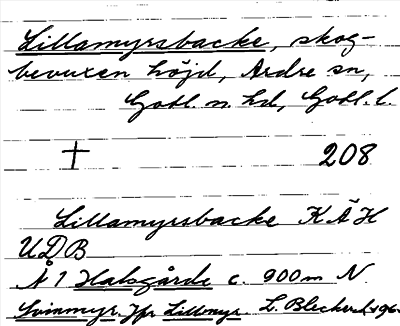 Lillamyrsbacke, skog-
bevuxen höjd, Ardre sn,
Gotl. n. hd, Gotl. l.
† 208
Lillamyrsbacke KÄH
UDB
Å 1 Halsgårde c. 900 m N
Svinmyr. Jfr Lillmyr. L. Blecherd 196